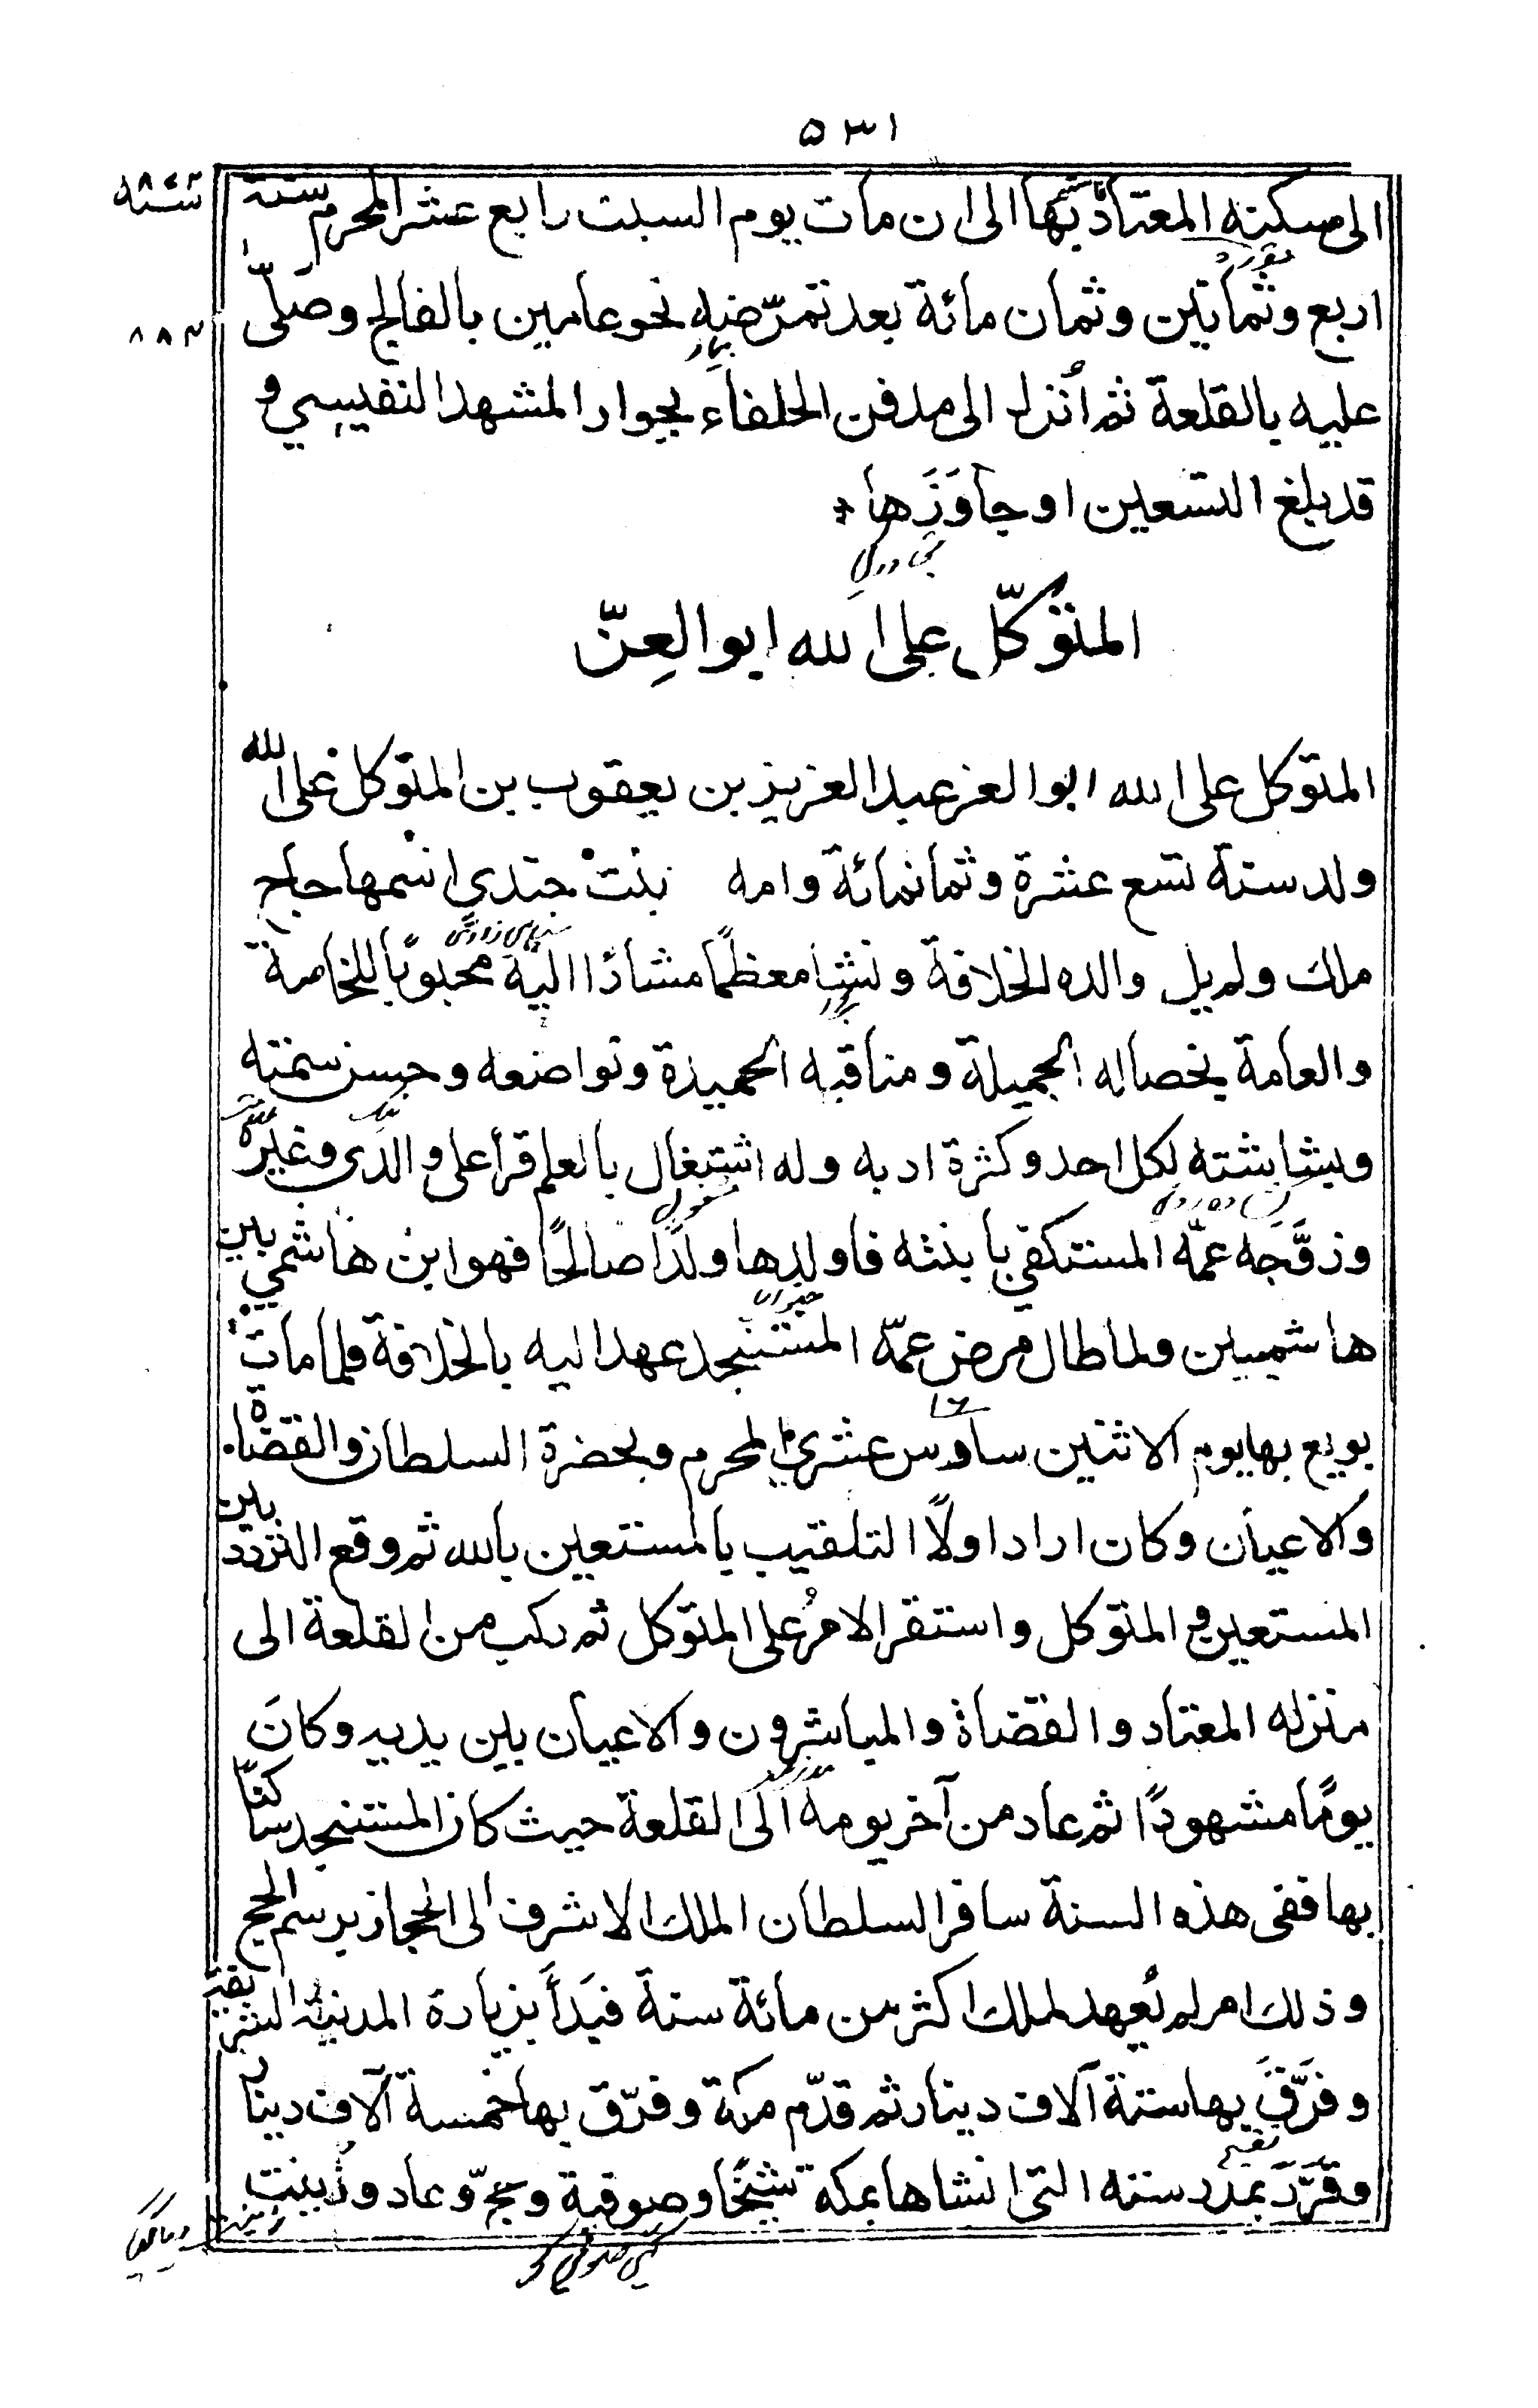 ٥٣١
الى مسكنه المعتاد بها الى ان مات يوم السبت رابع عشر المحرم سنة
اربع وثمانين وثمان مائة بعد تمرّضه نحو عامين بالفالج وصلّى
٨٨٤
عليه بالقلعة ثم اُنزل الى مدفن الخلفاء بجوار المشهد النفيسي و
قد بلغ التسعين او جاوَزَها
المتوكّل على الله ابو العِزّ
المتوكل على الله ابو العز عبد العزيز بن يعقوب بن المتوكل على الله
ولد سنة تسع عشرة وثمانمائة وامه بنت جندى اسمها حاج
ملك ولم يل والده الخلافة ونشا معظمًا مشارًا اليه محبوبًا للخاصة
والعامة بخصاله الجميلة ومناقبه الحميدة وتواضعه وحسن سمته
وبشاشته لكل احد وكثرة ادبه وله اشتغال بالعلم قرأ على والدى وغيره
وزوَّجَه عمّه المستكفي بابنته فاولدها ولدًا صالحًا فهو ابن هاشمي بين
هاشميين ولما طال مرض عمّه المستنجد عهد اليه بالخلافة فلما مات
بويع بها يوم الاثنين سادس عشرى المحرم وبحضرة السلطان والقضاة
والاعيان وكان اراد اولًا التلقيب بالمستعين بالله ثم وقع التردد بين
المستعين و المتوكل واستقر الامرُ على المتوكل ثم ركب من القلعة الى
منزله المعتاد والقضاة والمباشرون والاعيان بين يديه وكانَ
يومًا مشهودًا ثم عاد من آخر يومه الى القلعة حيث كان المستنجد ساكنًا
بها ففى هذه السنة سافر السلطان الملك الاشرف الى الحجاز برسم الحج
وذلك امر لم يُعهد لملك اكثر من مائة سنة فبَدأَ بزيارة المدينة الشريفة
وفرَّقَ بها ستة آلاف دينار ثم قدّم مكة وفرّق بها خمسة آلاف دينار
وقرَّرَ بمدرسته التى انشاها بمكة شيخًا وصوفية وحجّ وعاد وزُينت